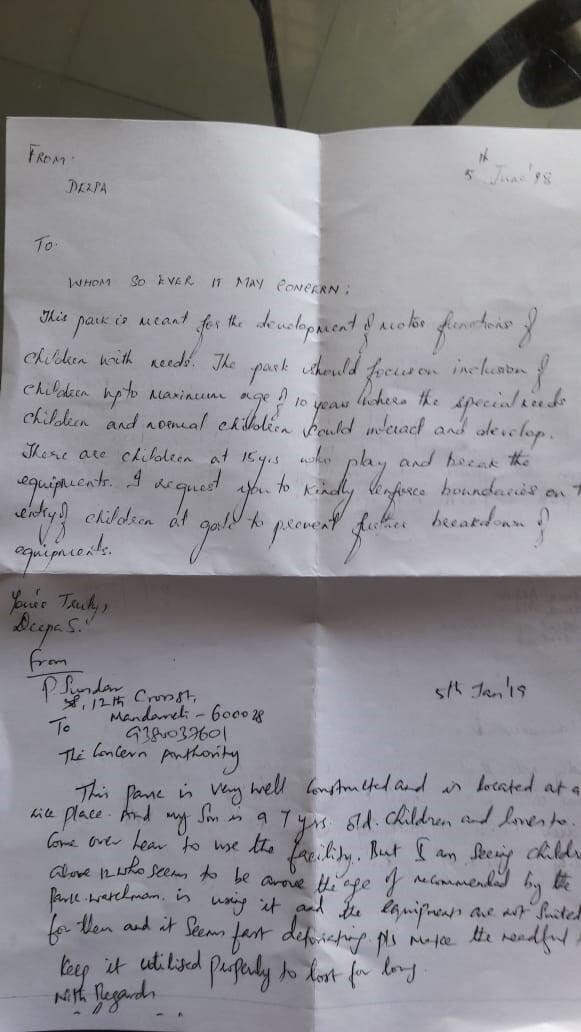 FROM:
DEEPA
5th June'98
To.
WHOM SO EVER IT MAY CONCERN:
This park is meant for the development of motor functions of
children with needs. The park should focus on inclusion of
children upto maximum age of 10 years where the special needs
children and normal children could interact and develop.
There are children at 15yrs who play and break the
equipments. I request you to kindly reinforce boundaries on
entry of children at gate to prevent further breakdown of
equipments.
Yours Truly,
Deepa S.
From
P Sundar
12th Cross st,
5th Jan'19
To
- 600028
The Concern Authority
This park is very well constructed and is located at a
nice place. And my Son is a 7 yrs. old. Children and loves to.
Come over hear to use the facility. But I am Seeing
above 12 who seems to be above the age of recommended by the
Park watchman. is using it and the equipments are not Suited
for them and it Seems fast pls make the needful
Keep it utilised properly to last for long.
With Regards